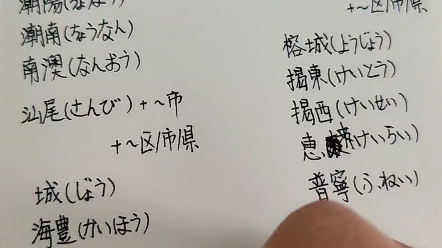 潮陽(ちょうよう)
潮南(ちょうなん)
南澳(なんおう)
汕尾(さんび)+~市
+~区/市/県
城(じょう)
海豊(かいほう)
+~区/市/県
榕城(ようじょう)
揭東(けいとう)
揭西(けいせい)
恵来(けいらい)
普寧(ふねい)